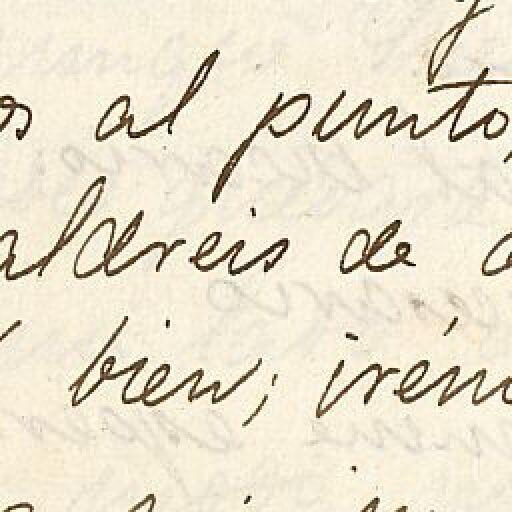 os al punto,
aldreis de
bien; irém